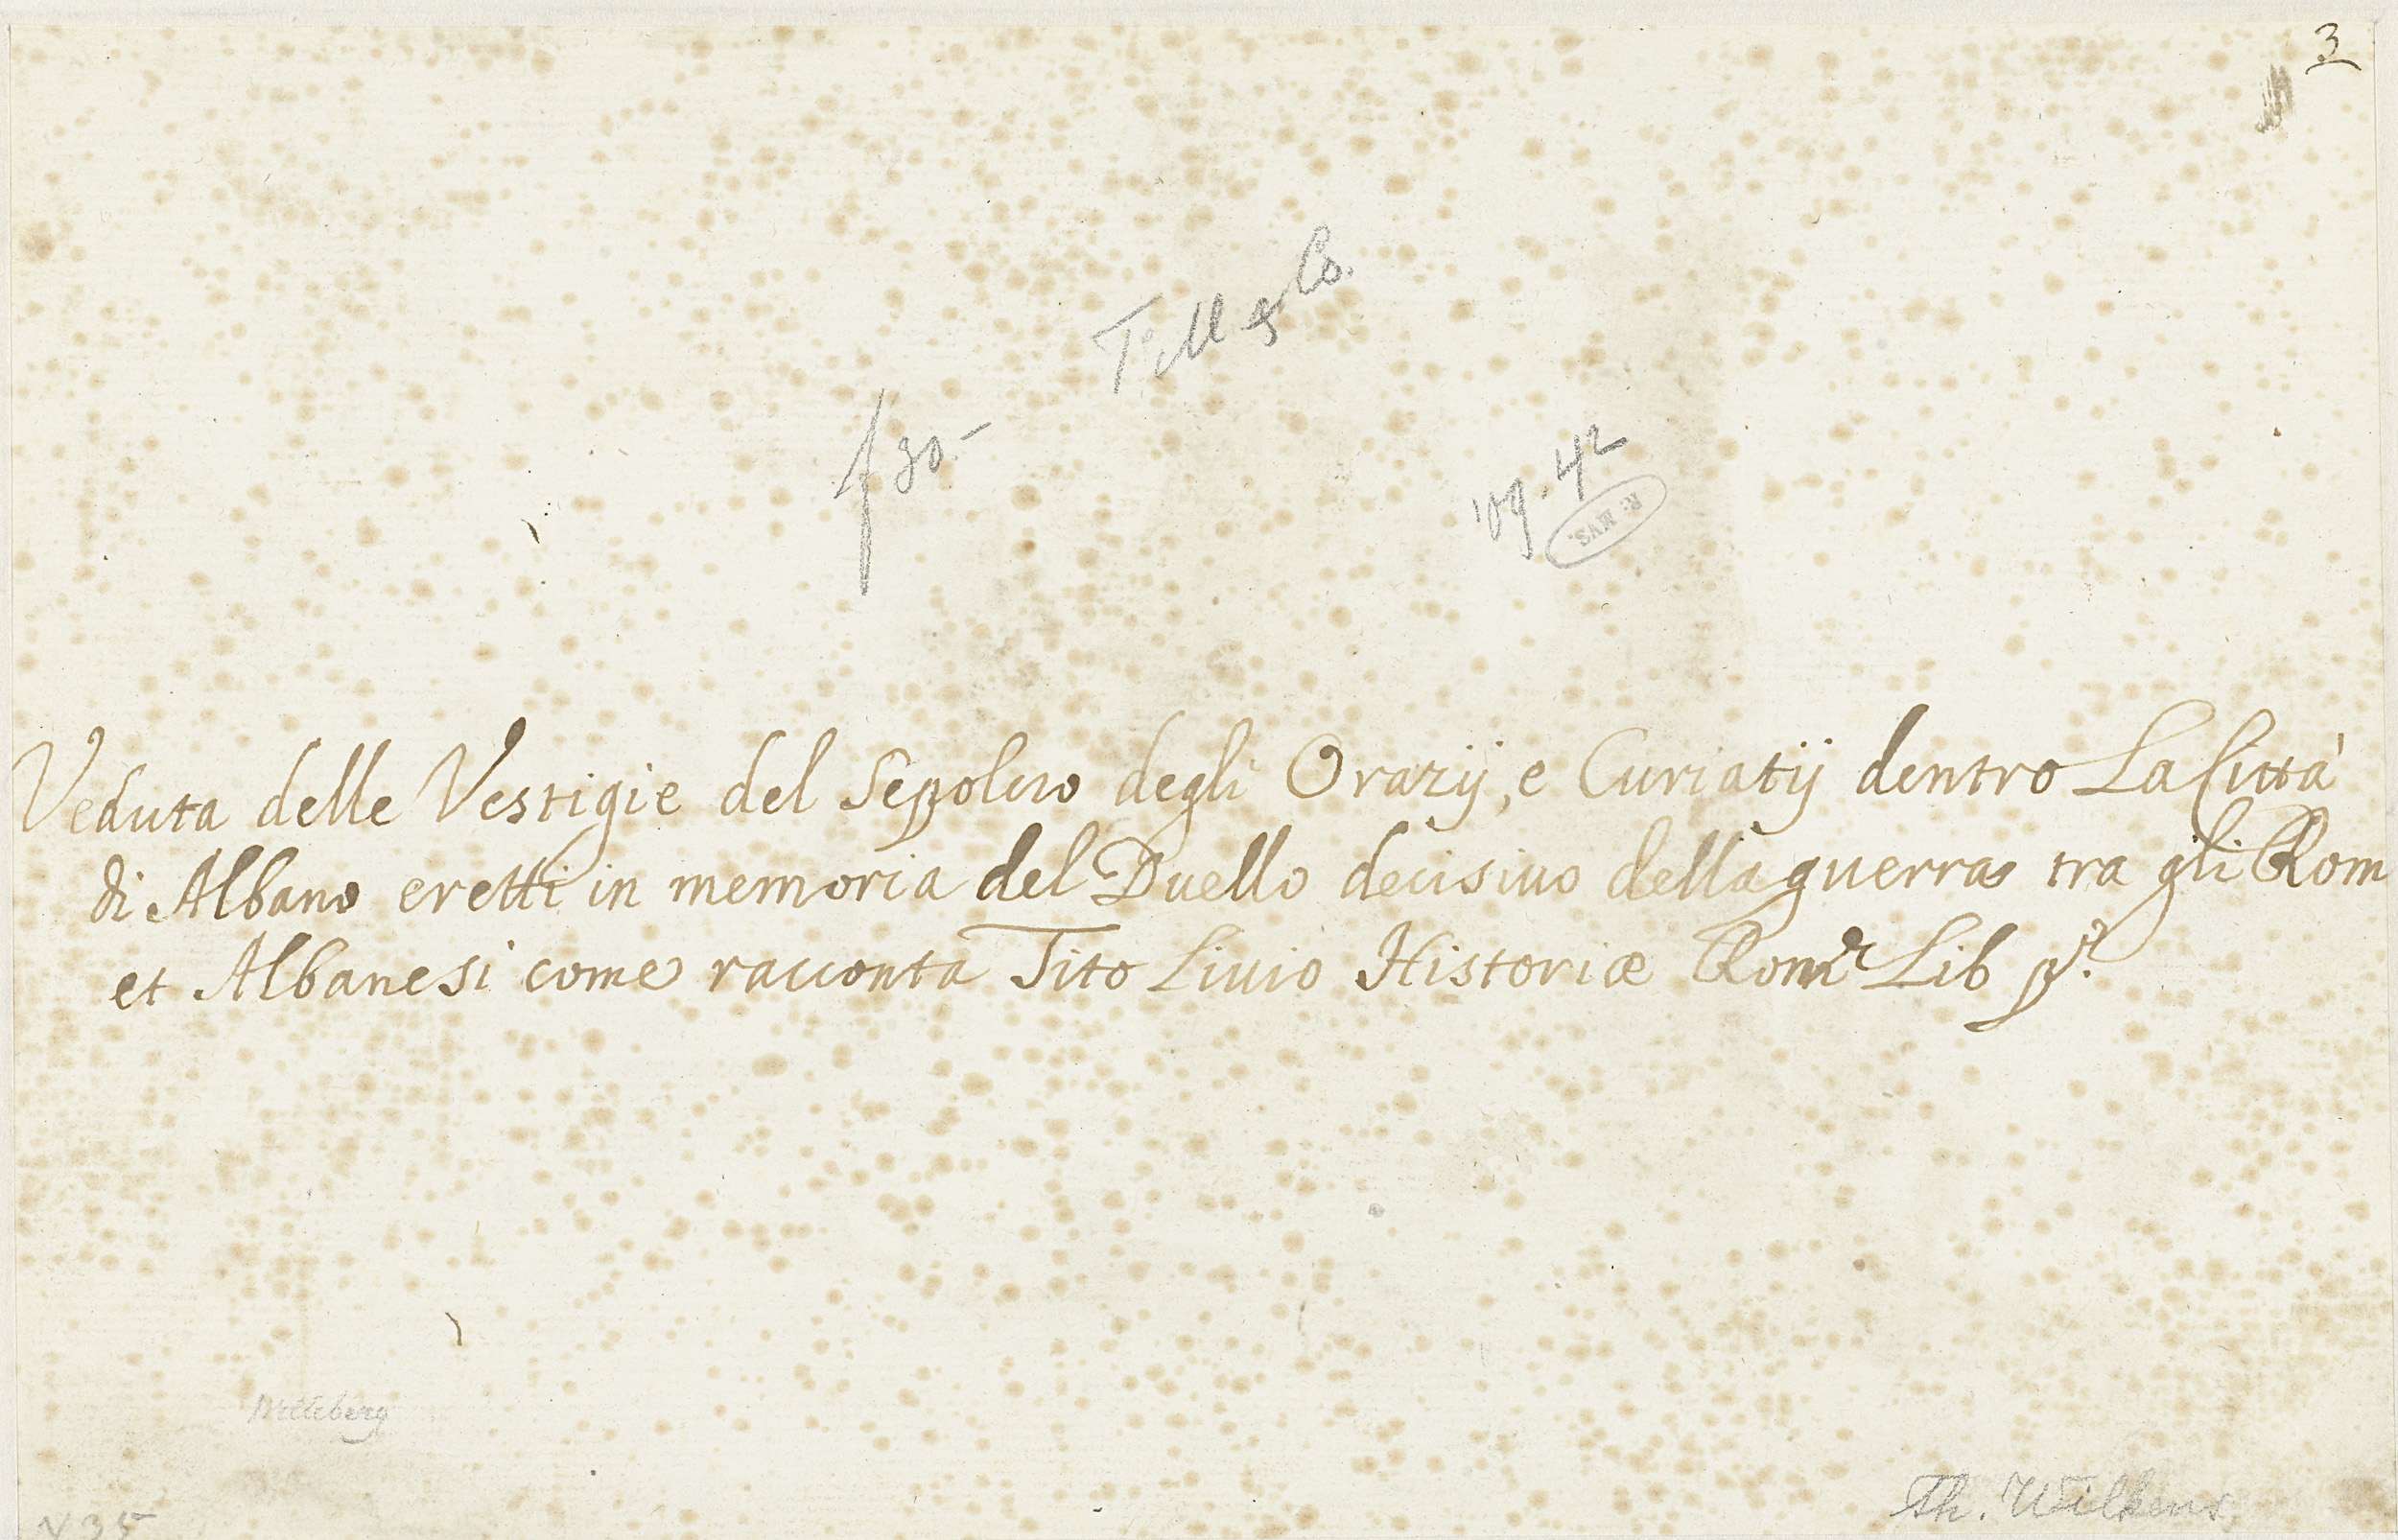 3
Till & Co.
f 30.-
'09.42
R: MVS.
Veduta delle Vestigie del Sepolcro degli Orazij, e Curiatij dentro La Città
di Albano eretti in memoria del Duello decisiuo della guerra tra gli Rom
et Albanesi come racconta Tito Liuio Historiæ Rom Lib
Th. Wilkens